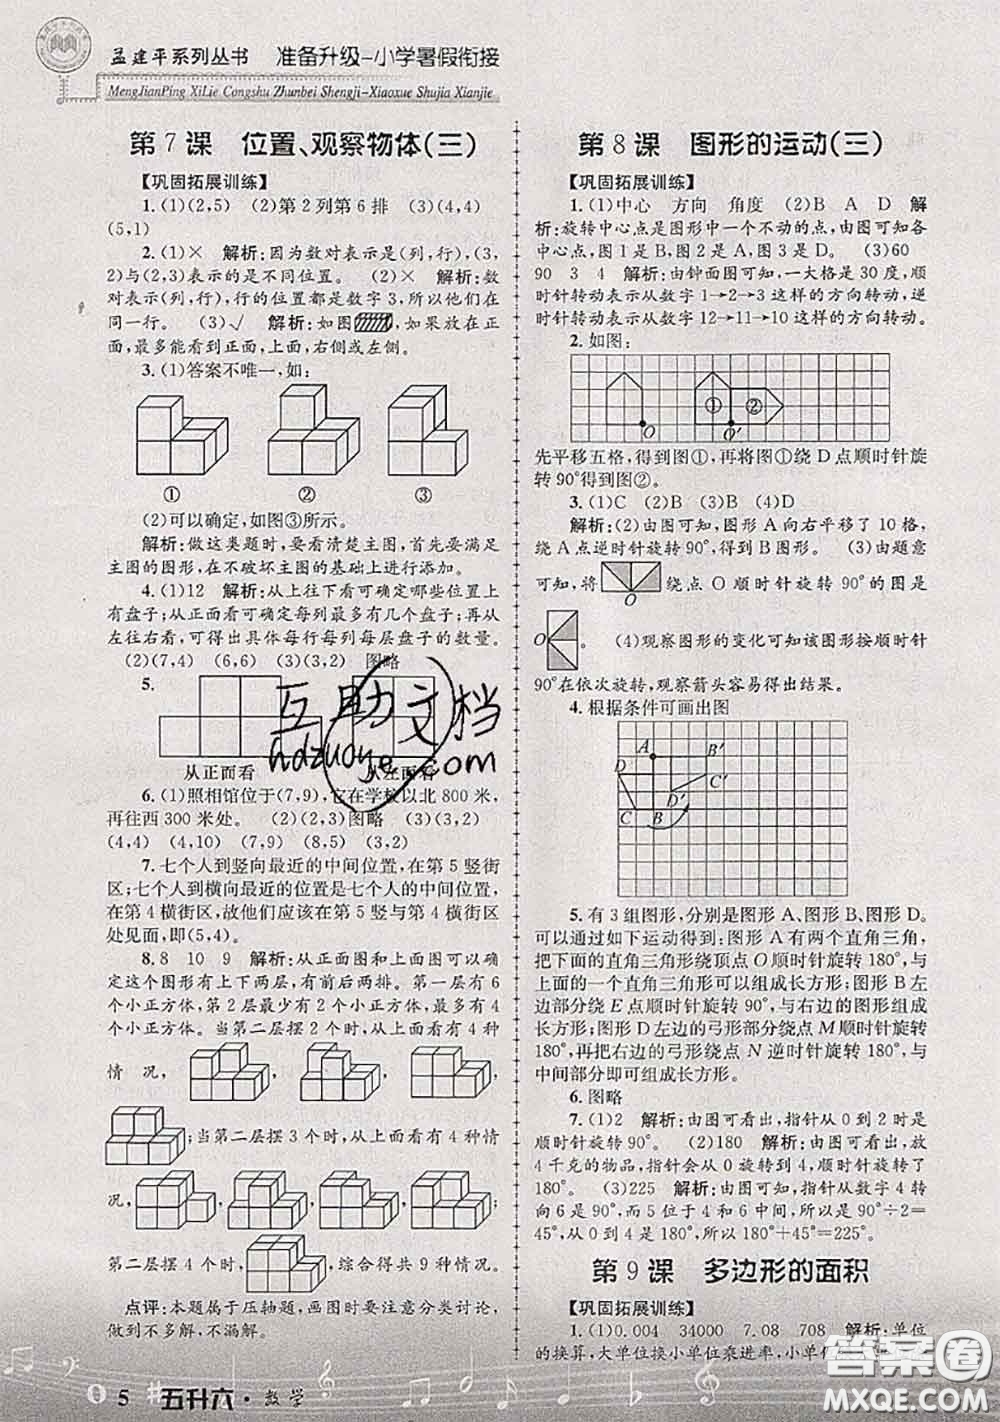 孟建平系列丛书　准备升级-小学暑假衔接
MengJianPing XiLie Congshu Zhunbei Shengji-Xiaoxue Shujia Xianjie
第 7 课　位置、观察物体(三)
【巩固拓展训练】
1.(1)(2,5)　(2)第 2 列第 6 排　(3)(4,4)
(5,1)
2.(1)×　解析:因为数对表示是(列,行),(3,
2)与(2,3)表示的是不同位置。　(2)×　解析:数
对表示(列,行),行的位置都是数字 3,所以他们在
同一行。　(3)√　解析:如图,如果放在正
面,最多能看到正面,上面,右侧或左侧。
3.(1)答案不唯一,如:
①　②　③
(2)可以确定,如图③所示。
解析:做这类题时,要看清楚主图,首先要满足
主图的图形,在不破坏主图的基础上进行添加。
4.(1)12　解析:从上往下看可确定哪些位置上
有盘子;从正面看可确定每列最多有几个盘子;再从
左往右看,可得出具体每行每列每层盘子的数量。
(2)(7,4)　(6,6)　(3)(3,2)　图略
5.
从正面看　从左面看
6.(1)照相馆位于(7,9),它在学校以北 800 米,
再往西 300 米处。　(2)(2,3)图略　(3)(3,2)
(4,4)　(4,10)　(7,9)　(8,5)　(3,2)
7.七个人到竖向最近的中间位置,在第 5 竖街
区;七个人到横向最近的位置是七个人的中间位置,
在第 4 横街区,故他们应该在第 5 竖与第 4 横街区
处见面,即(5,4)。
8.8　10　9　解析:从正面图和上面图可以确
定这个图形有上下两层,有前后两排。第一层有 6
个小正方体,第 2 层最少有 2 个小正方体,最多有 4
个小正方体。当第二层摆 2 个时,从上面看有 4 种
情况,
;当第二层摆 3 个时,从上面看有 4 种情
况,
第二层摆 4 个时,,综合得共 9 种情况。
点评:本题属于压轴题,画图时要注意分类讨论,
做到不多解,不漏解。
第 8 课　图形的运动(三)
【巩固拓展训练】
1.(1)中心　方向　角度　(2)B　A　D　解
析:旋转中心点是图形中一个不动的点,由图可知各
中心点,图 1 是 B,图 2 是 A,图 3 是 D。　(3)60
90　3　4　解析:由钟面图可知,一大格是 30 度,顺
时针转动表示从数字 1→2→3 这样的方向转动,逆
时针转动表示从数字 12→11→10 这样的方向转动。
2.如图:
①　②　O　O′
先平移五格,得到图①,再将图①绕 D 点顺时针旋
转 90°得到图②。
3.(1)C　(2)B　(3)B　(4)D
解析:(2)由图可知,图形 A 向右平移了 10 格,
绕 A 点逆时针旋转 90°,得到 B 图形。　(3)由题意
可知,将绕点 O 顺时针旋转 90°的图是
O
O
(4)观察图形的变化可知该图形按顺时针
90°在依次旋转,观察箭头容易得出结果。
4.根据条件可画出图
A　B′
D　C′
D′
C　B
5.有 3 组图形,分别是图形 A、图形 B、图形 D。
可以通过如下运动得到:图形 A 有两个直角三角,
把下面的直角三角形绕顶点 O 顺时针旋转 180°,与
上面的一个直角三角形可以组成长方形;图形 B 左
边部分绕 E 点顺时针旋转 90°,与右边的图形组成
长方形;图形 D 左边的弓形部分绕点 M 顺时针旋转
180°,再把右边的弓形绕点 N 逆时针旋转 180°,与
中间部分即可组成长方形。
6.图略
7.(1)2　解析:由图可看出,指针从 0 到 2 时是
顺时针旋转 90°。　(2)180　解析:由图可看出,放
4 千克的物品,指针会从 0 旋转到 4,顺时针旋转了
180°。　(3)225　解析:由图可知,指针从数字 4 转
向 6 是 90°,而 5 位于 4 和 6 中间,所以是 90°÷2=
45°,从 0 到 4 是 180°,所以 180°+45°=225°。
第 9 课　多边形的面积
【巩固拓展训练】
1.(1)0.004　34000　7.08　708　解析:单位
的换算,大单位换小单位乘进率,小单位
5　五升六·数学
互助文档
hdzuoye.com
答案圈
MXQE.COM